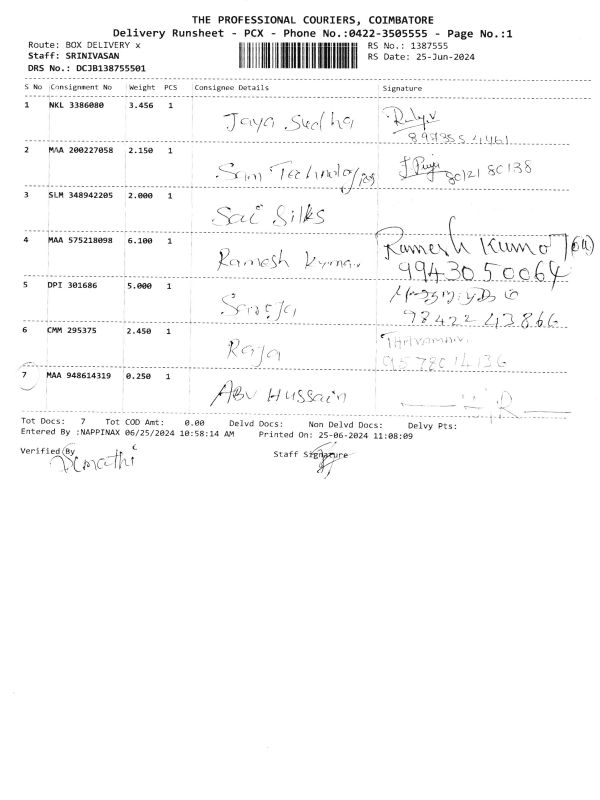 THE PROFESSIONAL COURIERS, COIMBATORE
Delivery Runsheet - PCX - Phone No.:0422-3505555 - Page No.:1
Route: BOX DELIVERY x RS No.: 1387555
Staff: SRINIVASAN RS Date: 25-Jun-2024
DRS No.: DCJB138755501
S No Consignment No Weight PCS Consignee Details Signature
1 NKL 3386080 3.456 1 Jaya Sudha
2 MAA 200227058 2.150 1 Sam Technologies 80121 80138
3 SLM 348942205 2.000 1 Sai Silks
4 MAA 575218098 6.100 1 Ramesh Kumar Ramesh Kumar
9943050064
5 DPI 301686 5.000 1
98422 43866
6 CMM 295375 2.450 1 Raja
95780 14136
7 MAA 948614319 0.250 1 ABU Hussain
Tot Docs: 7 Tot COD Amt: 0.00 Delvd Docs: Non Delvd Docs: Delvy Pts:
Entered By :NAPPINAX 06/25/2024 10:58:14 AM Printed On: 25-06-2024 11:08:09
Verified By Staff Signature